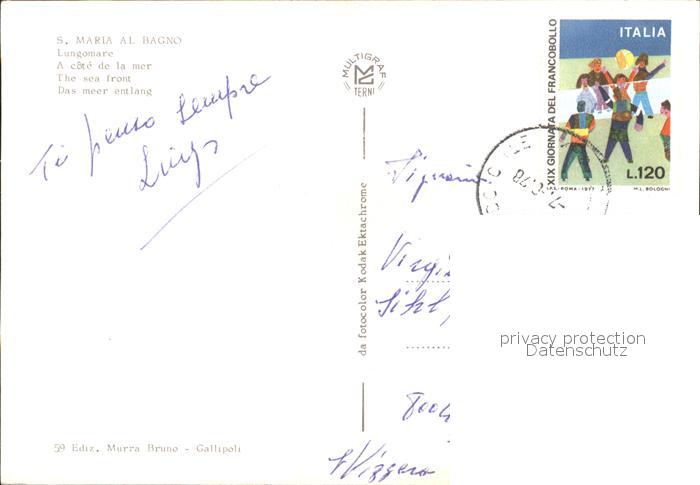 S. MARIA AL BAGNO
Lungomare
A côté de la mer
The sea front
Das meer entlang
Ti penso sempre
Luigi
59 Ediz. Murra Bruno - Gallipoli
MULTIGRAF
TERNI
da fotocolor Kodak Ektachrome
XIX GIORNATA DEL FRANCOBOLLO
ITALIA
L.120
I.P.S.-ROMA-1977
M.L. BOLOGNI
Signorina
Sihl
Svizzera
privacy protection
Datenschutz